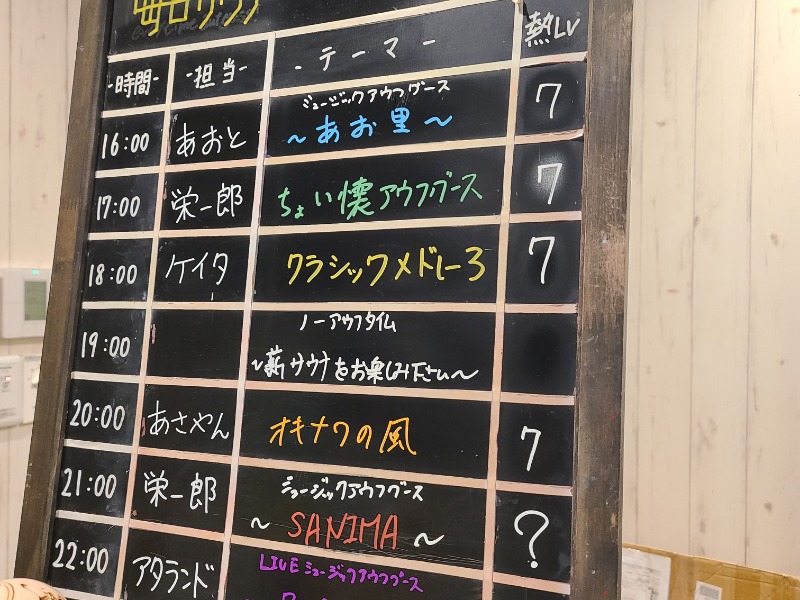 -時間- -担当- -テーマ- 熱LV
16:00 あおと ミュージックアウフグース 7
～あお里～
17:00 栄一郎 ちょい懐アウフグース 7
18:00 ケイタ クラシックメドレー3 7
19:00 ノーアウフタイム
～薪サウナをお楽しみ下さい～
20:00 あさやん オキナワの風 7
21:00 栄一郎 ミュージックアウフグース ?
～SANIMA～
22:00 アタランド LIVEミュージックアウフグース